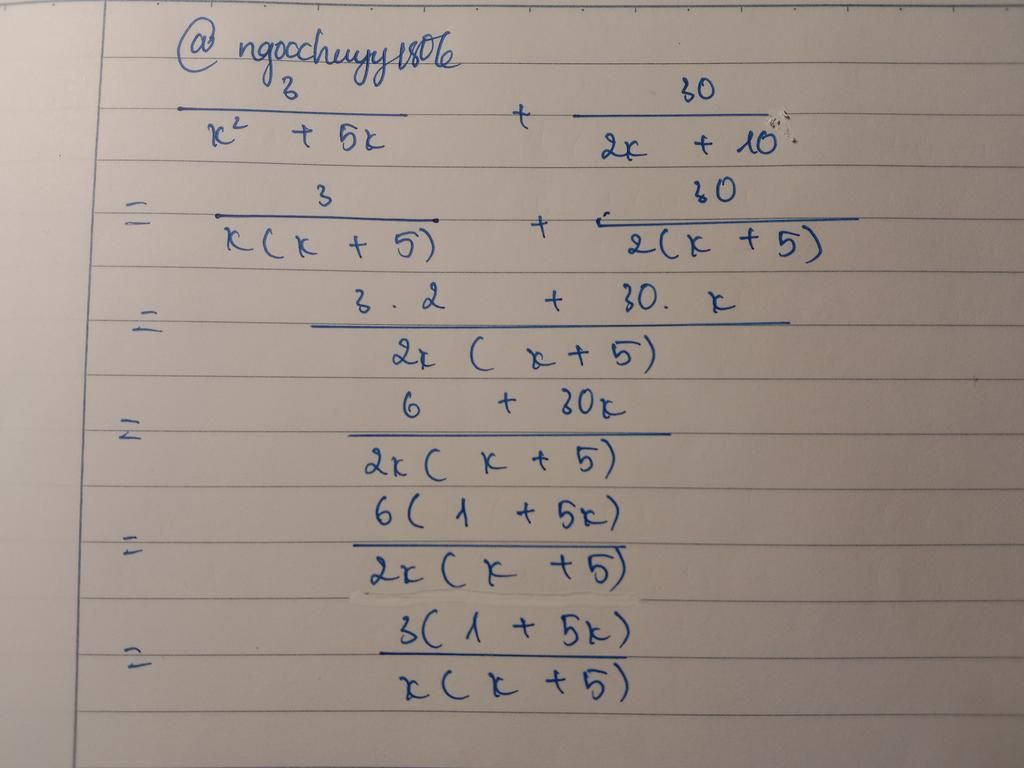 @ ngocchuyy1806
3 / (x² + 5x) + 30 / (2x + 10)
= 3 / (x(x + 5)) + 30 / (2(x + 5))
= (3 . 2 + 30 . x) / (2x(x + 5))
= (6 + 30x) / (2x(x + 5))
= 6(1 + 5x) / (2x(x + 5))
= 3(1 + 5x) / (x(x + 5))